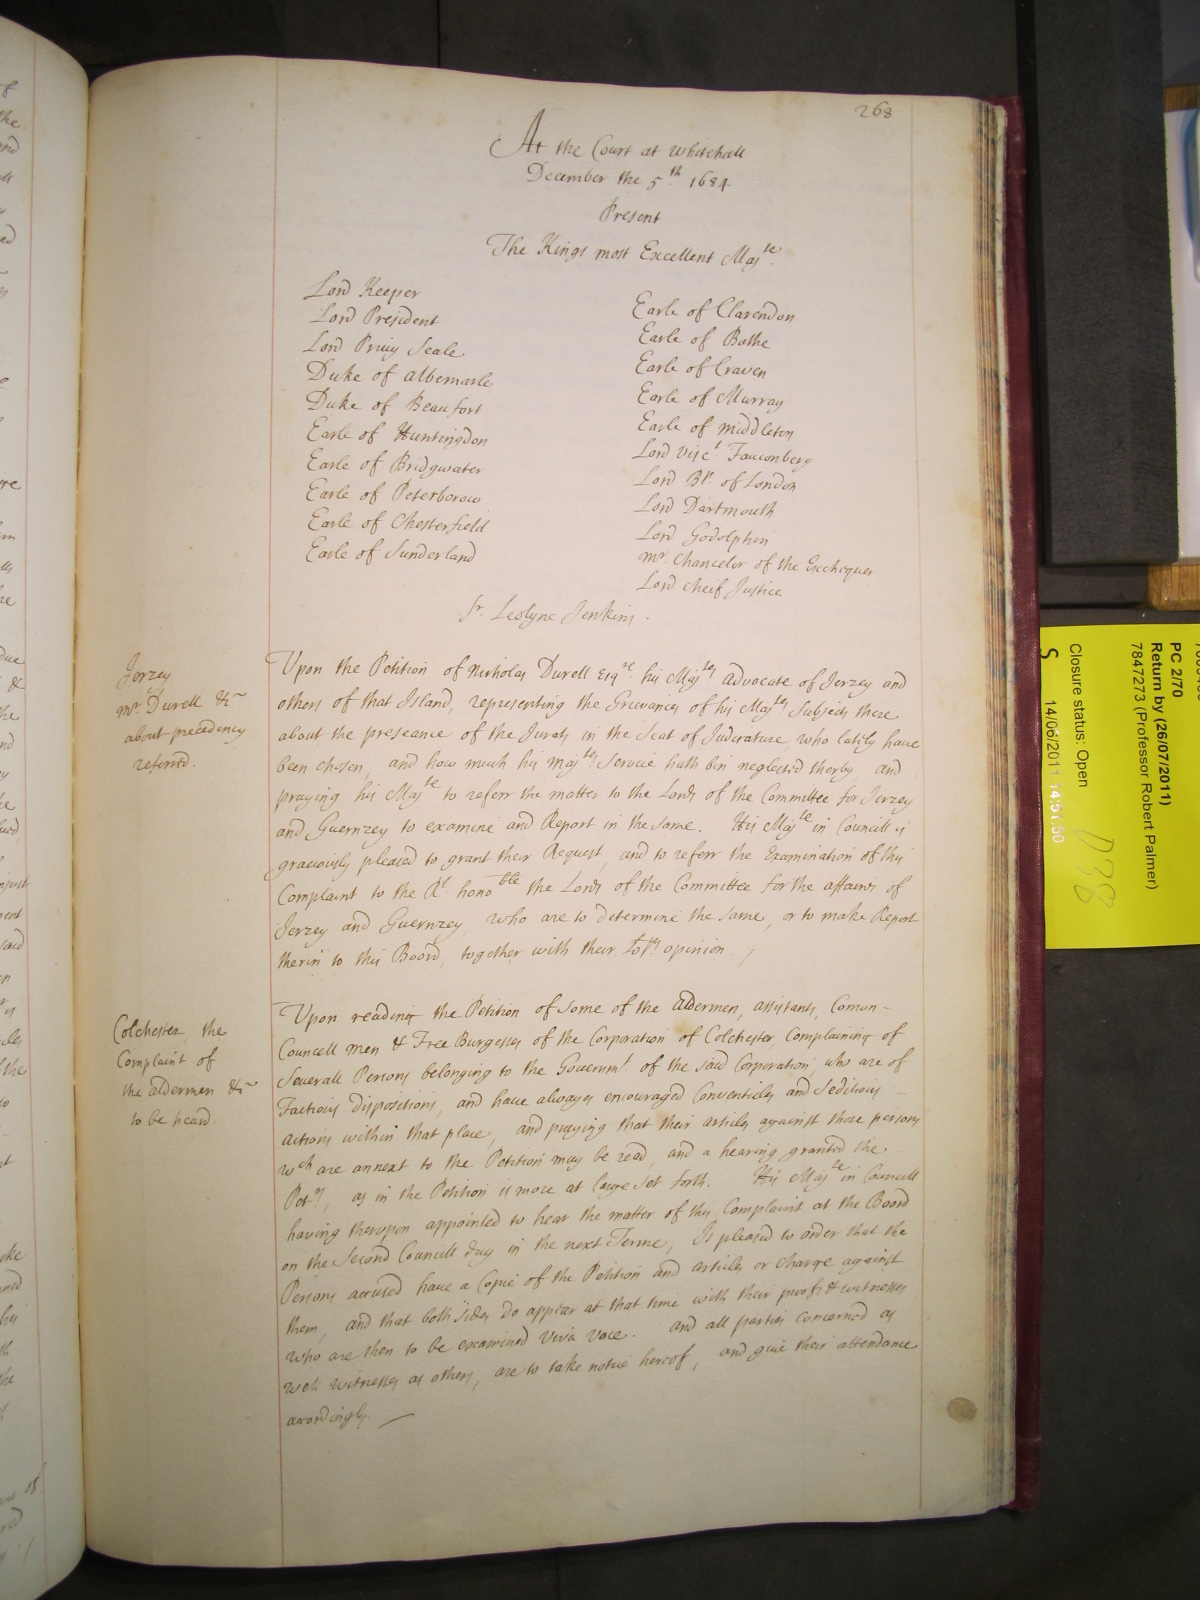 268
At the Court at Whitehall
December the 5th 1684
Present
The Kings most Excellent Majte.
Lord Keeper
Lord President
Lord Privy Seale
Duke of Albemarle
Duke of Beaufort
Earle of Huntingdon
Earle of Bridgwater
Earle of Peterborow
Earle of Chesterfield
Earle of Sunderland
Earle of Clarendon
Earle of Bathe
Earle of Craven
Earle of Murray
Earle of Middleton
Lord Visct Fauconberg
Lord Bp. of London
Lord Dartmouth
Lord Godolphin
Mr. Chancelr of the Exchequer
Lord Cheif Justice
Sr. Leolyne Jenkins.
Jerzey
Mr. Durell &c
about precedency
referred.
Upon the Petition of Nicholas Durell Esqre his Majtes Advocate of Jerzey and
others of that Island, representing the Grievances of his Majtes Subjects there
about the preseance of the Jurats in the Seat of Judicature, who lately have
been chosen, and how much his Majtes Service hath bin neglected therby, and
praying his Majte to referr the matter to the Lords of the Committee for Jerzey
and Guernzey to examine and Report in the same. His Majte in Councill is
graciously pleased to grant their Request, and to referr the Examination of this
Complaint to the Rt honoble the Lords of the Committee for the affaires of
Jerzey and Guernzey, who are to determine the same, or to make Report
therin to this Board, together with their Lopps opinion.
Colchester, the
Complaint of
the aldermen &c
to be heard.
Upon reading the Petition of some of the Aldermen, assistants, Comon-
Councell men & Free Burgesses of the Corporation of Colchester, complaining of
Severall Persons belonging to the Governmt. of the said Corporation, who are of
Factious dispositions, and have alwayes encouraged Conventicles and Seditious
actions within that place, and praying that their articles against those persons
wch are annext to the Petition may be read, and a hearing granted the
Petrs, as in the Petition is more at large set forth. His Majte in Councill
having therupon appointed to hear the matter of this Complaint at the Board
on the Second Councill day in the next Terme, Is pleased to order that the
Persons accused have a Copie of the Petition and articles or charge against
them, and that both sides do appear at that time with their proofs & witnesses
who are then to be examined viva voce. and all parties concerned as
well witnesses as others, are to take notice hereof, and give their attendance
accordingly.
PC 2/70
Return by (26/07/2011)
7847273 (Professor Robert Palmer)
Closure status: Open
S 14/06/2011 14:51:50
D38